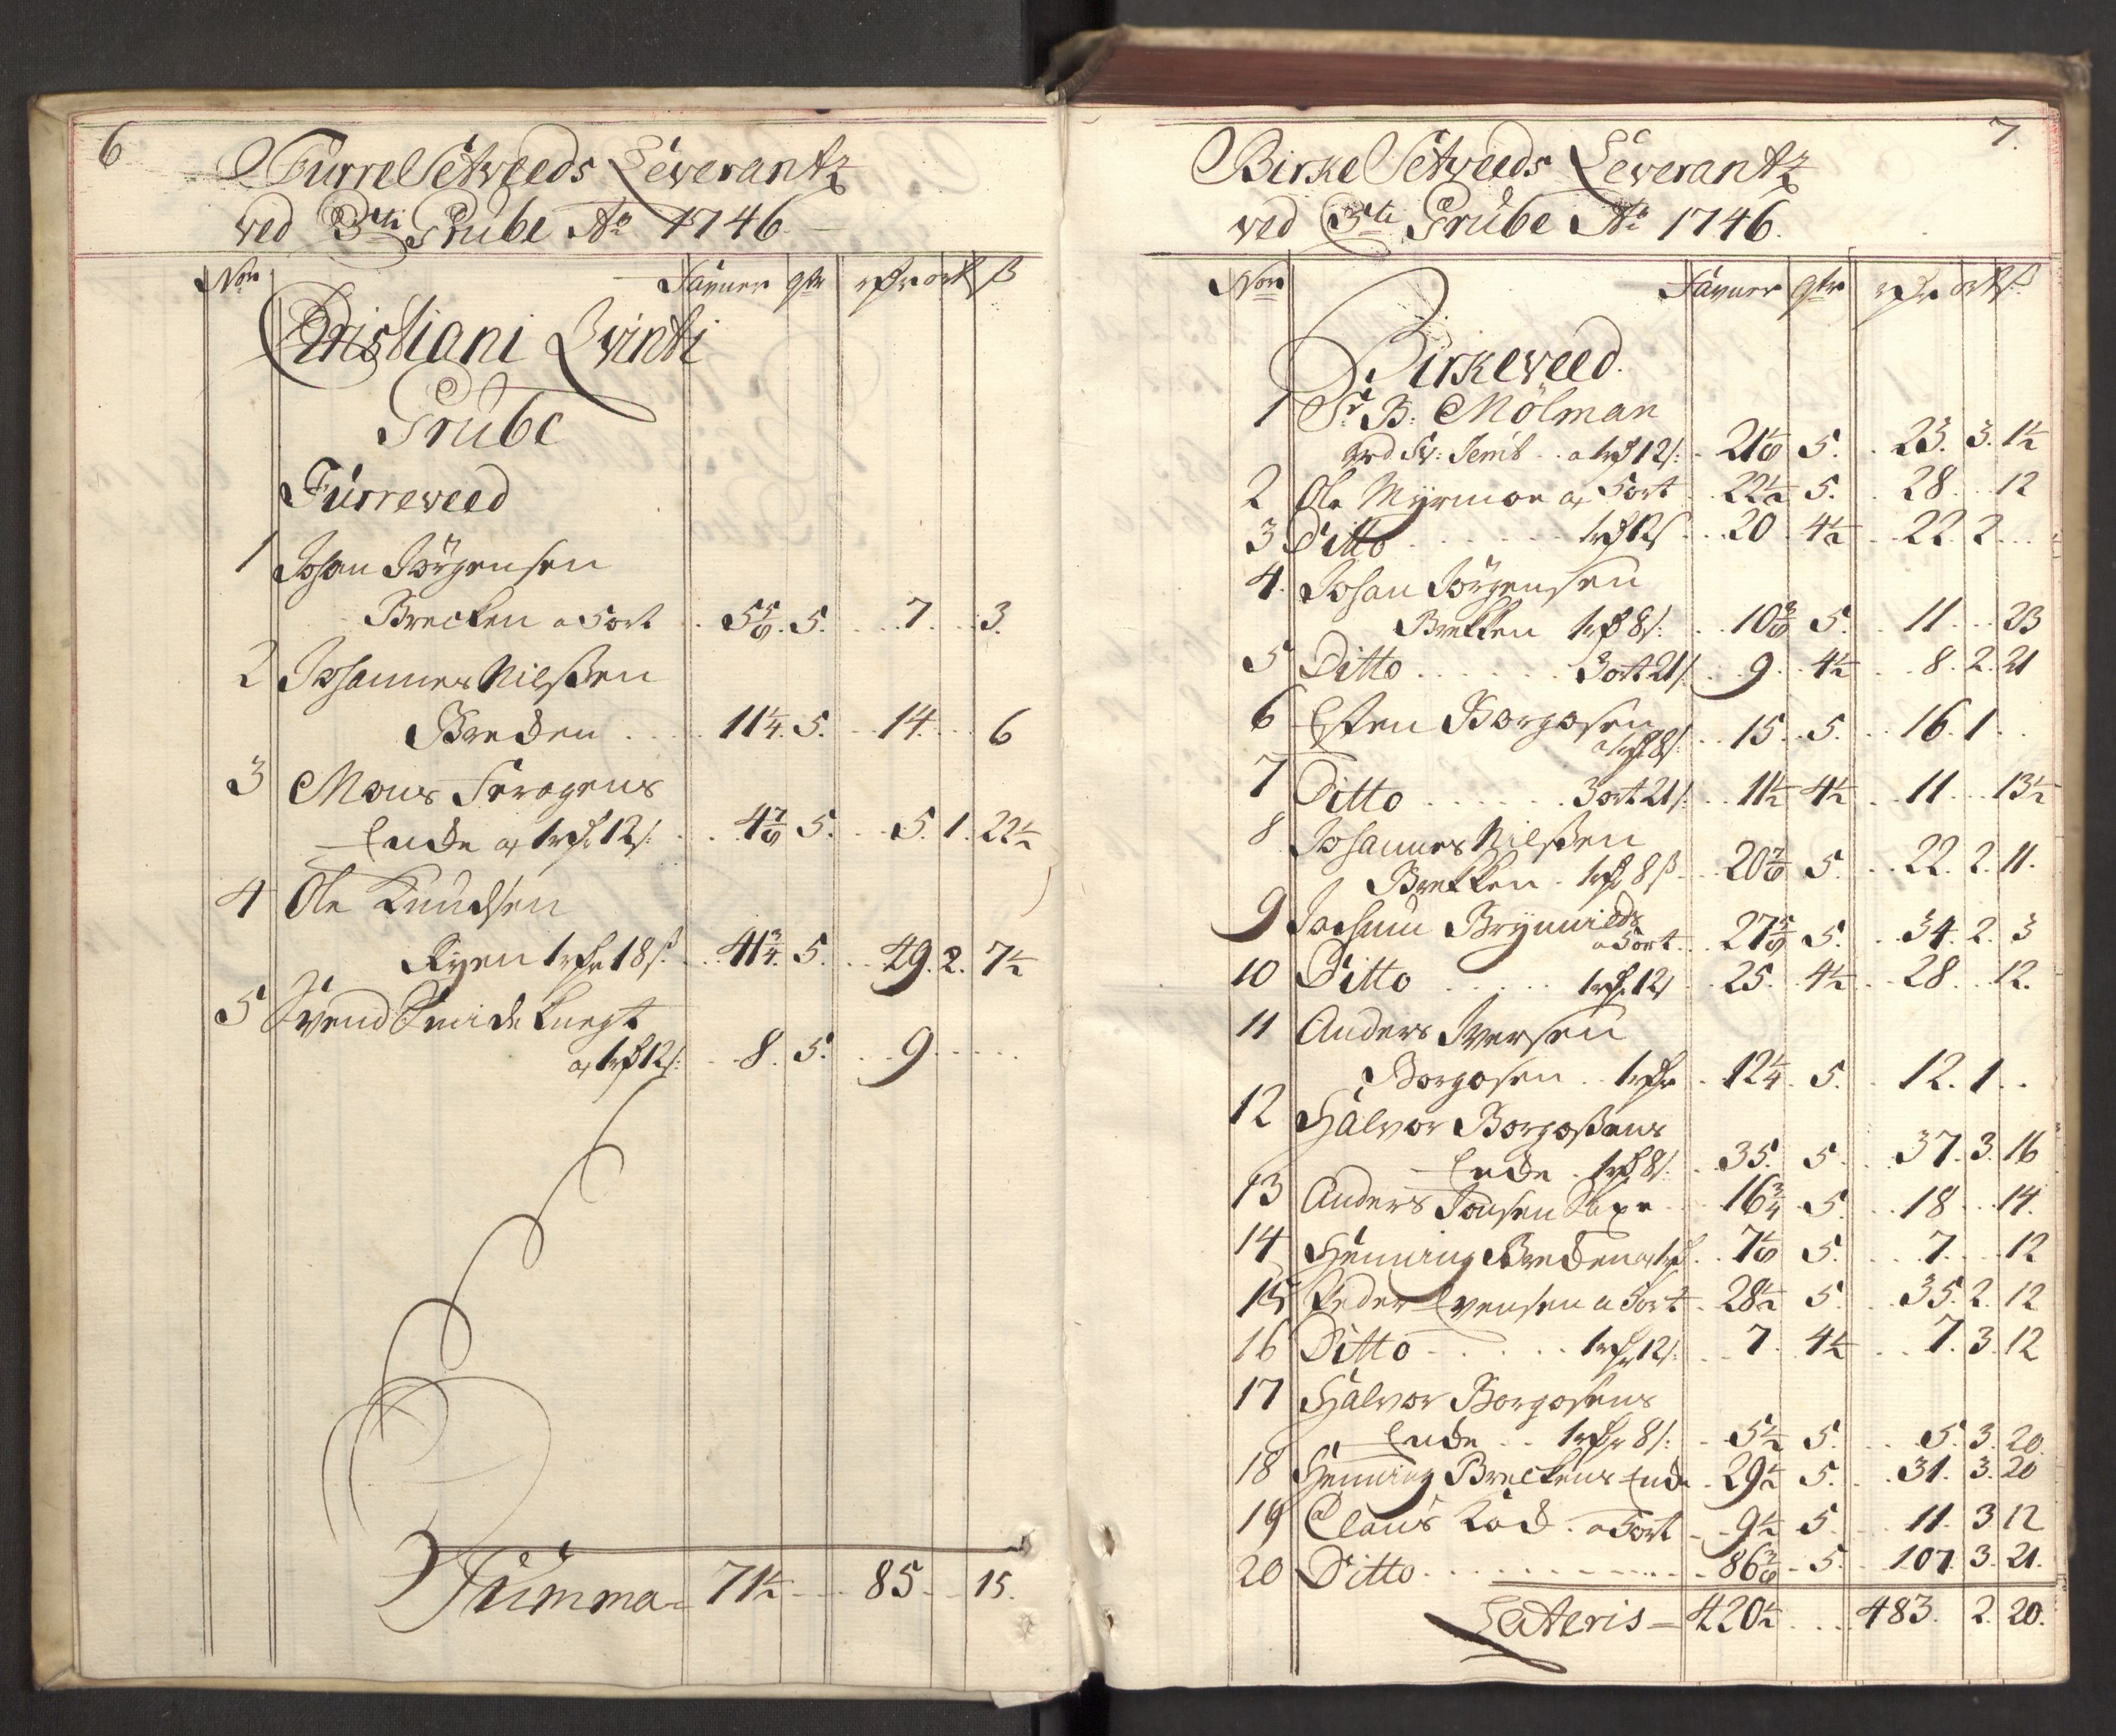 6
FurreSetweeds Leverantz
ved 5te Grube Ao 1746
Nor Fauner qtr rdr ort ß
Christiani Qvinti
Grube
Furreweed
1 Johan Jörgensen
Brecken a 5 ort 5 5/8 5. 7. 3.
2 Johannes Nilssen
Breden 11 1/4 5. 14. 6
3 Mons Feragens
Encke a 1 rdr 12 ß 4 7/8 5. 5. 1. 22 1/2
4 Ole Knudsen
Ryen 1 rdr 18 ß 41 3/4 5. 49. 2. 7 1/2
5 Svend Smideknegt
a 1 rd 12 ß 8. 5. 9
Summa 71 1/2 85 15.
7.
Birke Setweeds Leverantz
ved 5te Grube Ao 1746.
Nor Fauner qtr rdr ort ß
Birkeweed.
1 Sr B: Mölman
a 1 rd 12 ß 21 1/8 5. 23. 3. 1 1/2
2 Ole Myrmoe a 5 ort 22 1/2 5. 28 12
3 Ditto 1 rd 12 ß 20 4 1/2 22. 2
4. Johan Jörgensen
Brekken 1 rd 8 ß 10 3/8 5. 11 23
5 Ditto 3 ort 21 ß 9. 4 1/2 8. 2. 21
6 Esten Borgosen
a 1 rd 8 ß 15. 5. 16. 1
7 Ditto 3 ort 21 ß 11 1/2 4 1/2 11 13 1/2
8 Johannes Nilssen
Brekken 1 rdr 8 ß 20 7/8 5. 22. 2. 11.
9 Jochum Brynnilds
a 5 ort 27 5/8 5. 34. 2. 3
10 Ditto 1 rdr 12 ß 25. 4 1/2 28 12.
11 Anders Iversen
Borgosen 1 rdr 12 1/4 5. 12. 1
12 Halvor Borgosens
Encke 1 rd 8 ß 35. 5. 37. 3. 16
13 Anders Jonsen 16 3/4 5. 18 14.
14 Henning Breden a 1 rd 7 1/8 5. 7. 12
15 Peder Evensen a 5 ort 28 1/2 5. 35. 2. 12
16 Ditto 1 rdr 12 ß 7. 4 1/2 7. 3. 12
17 Halvor Borgosens
Encke 1 rdr 8 ß 5 1/2 5. 5. 3. 20.
18 Henning Breckens Encke 29 1/2 5. 31. 3. 20
19 Claus Kòd a 5 ort 9 1/2 5 11. 3 12
20 Ditto 86 3/8 5. 107. 3. 21.
Lateris 420 1/2 483. 2. 20.